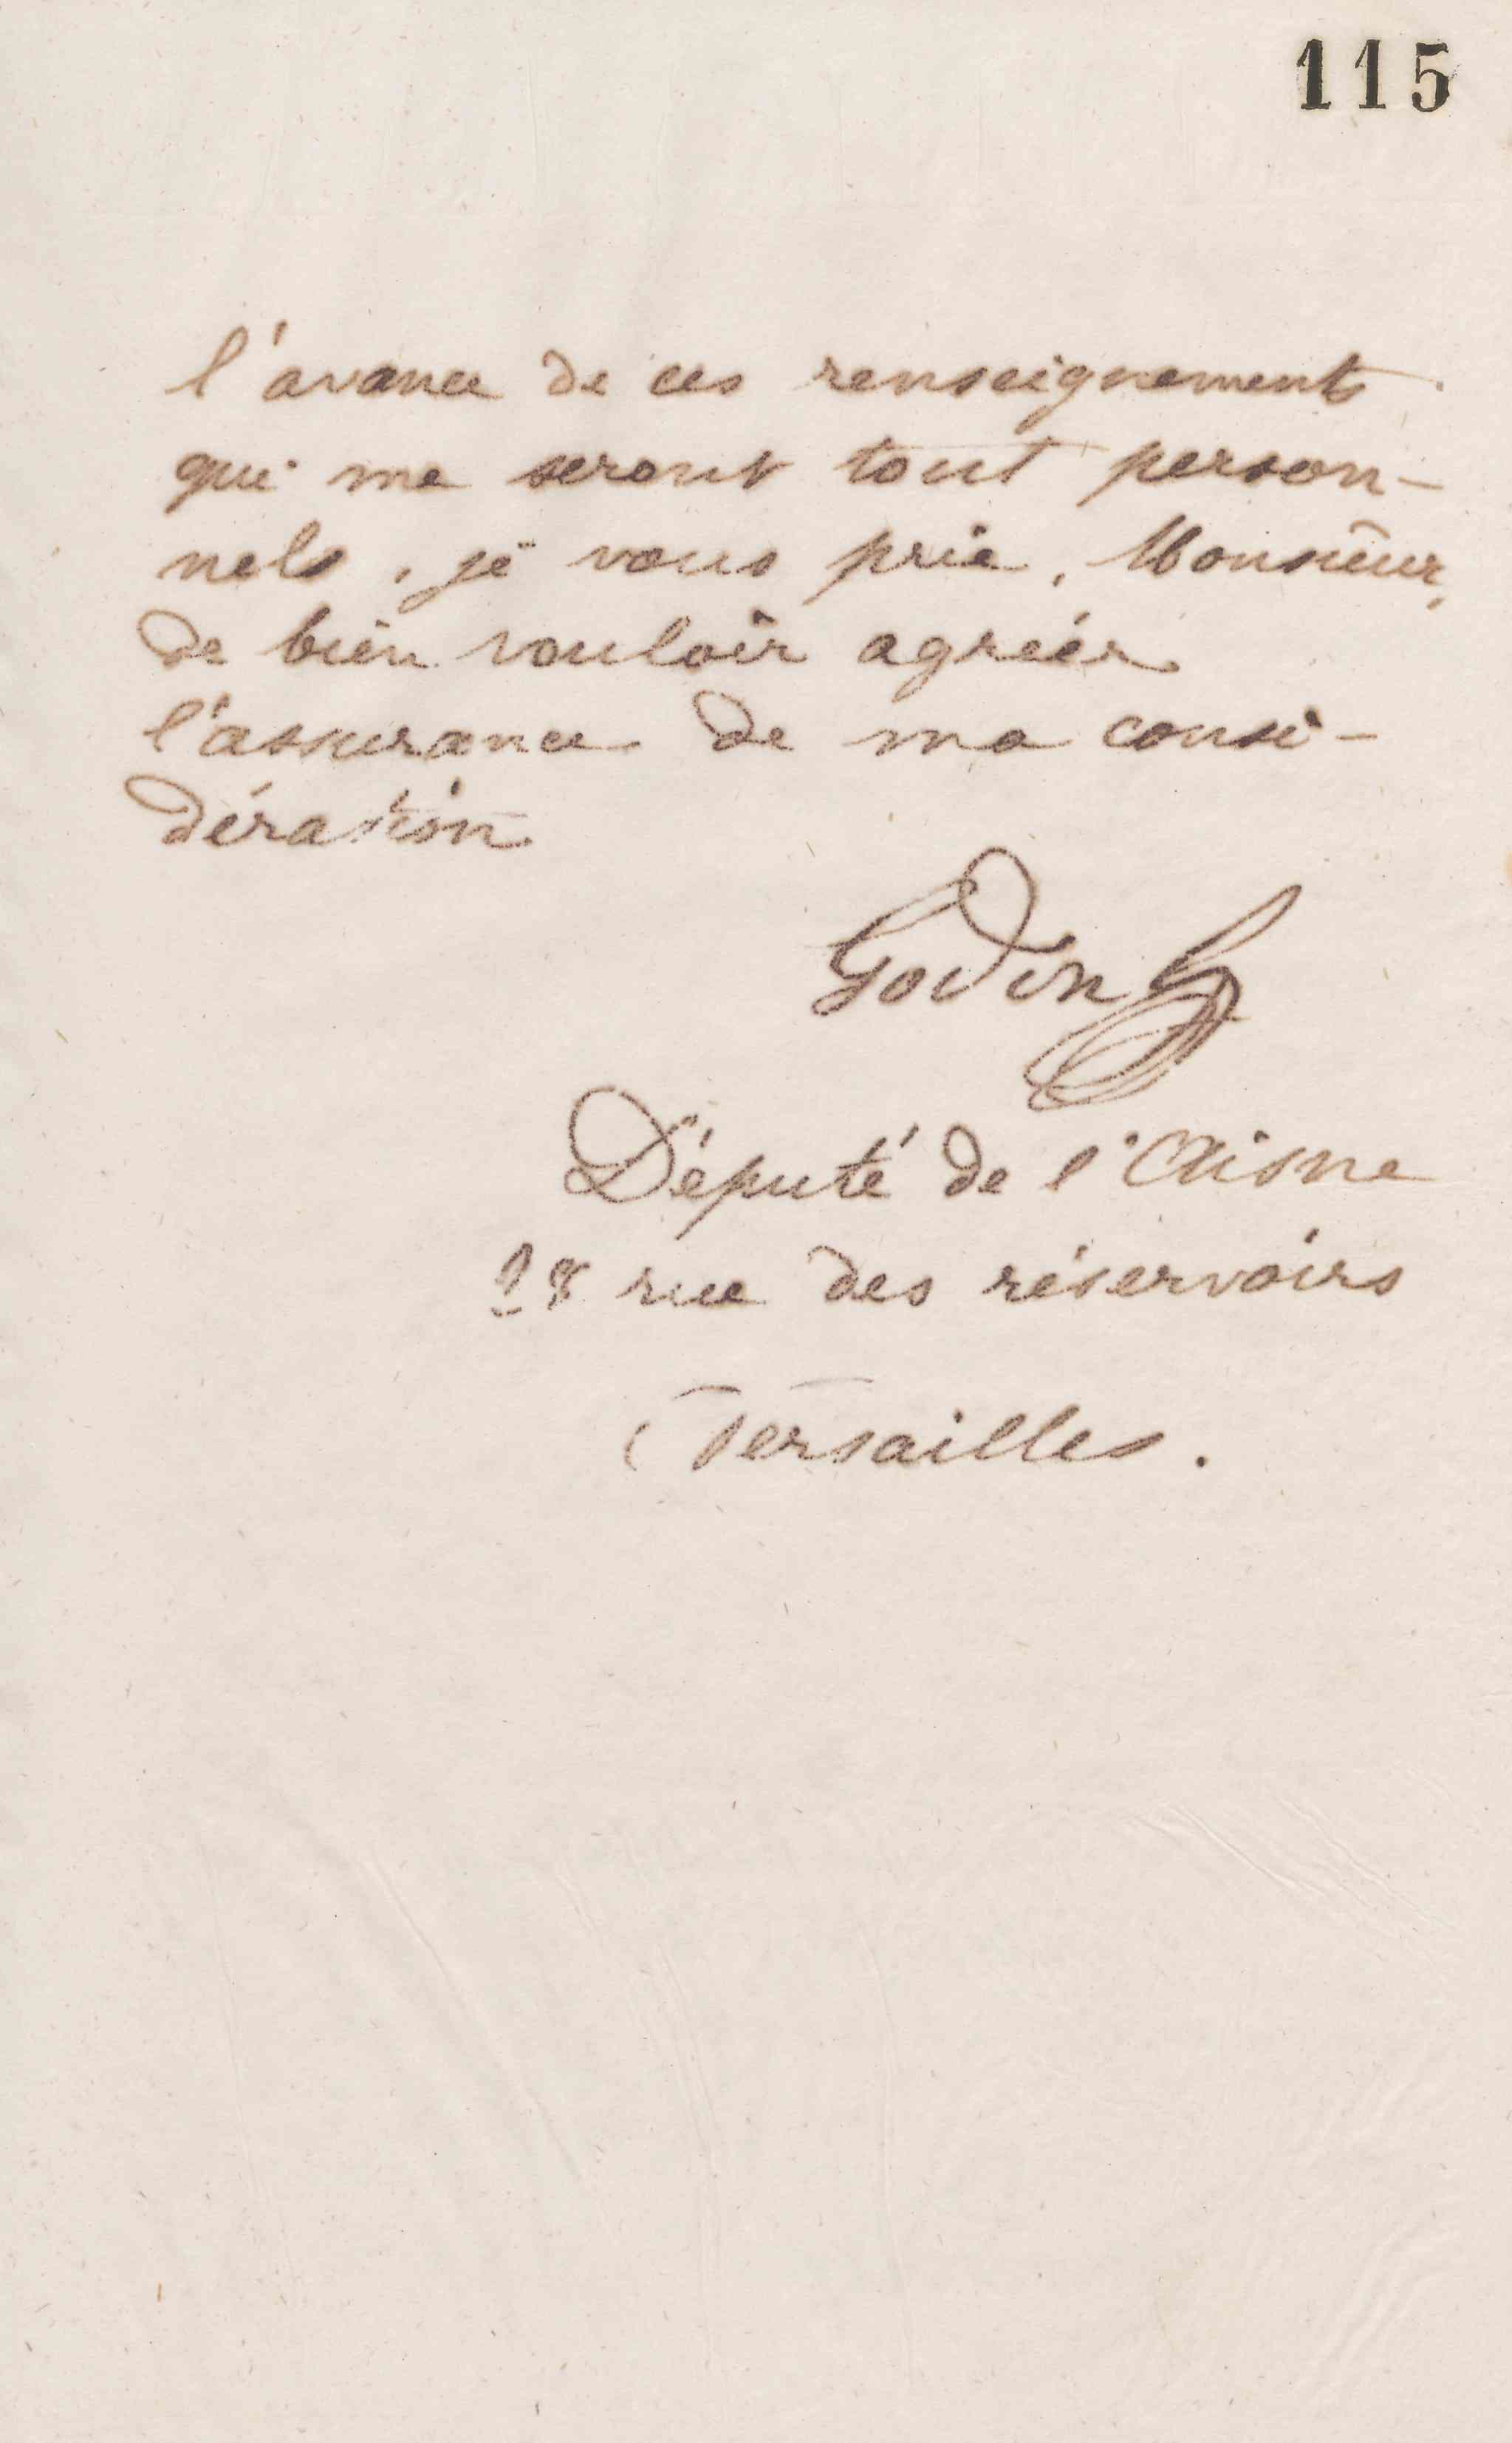 115
l'avance de ces renseignements
qui me seront tout person-
nels, je vous prie, Monsieur,
de bien vouloir agréer
l'assurance de ma consi-
dération
Godin
Député de l'Aisne
28 rue des réservoirs
Versailles.